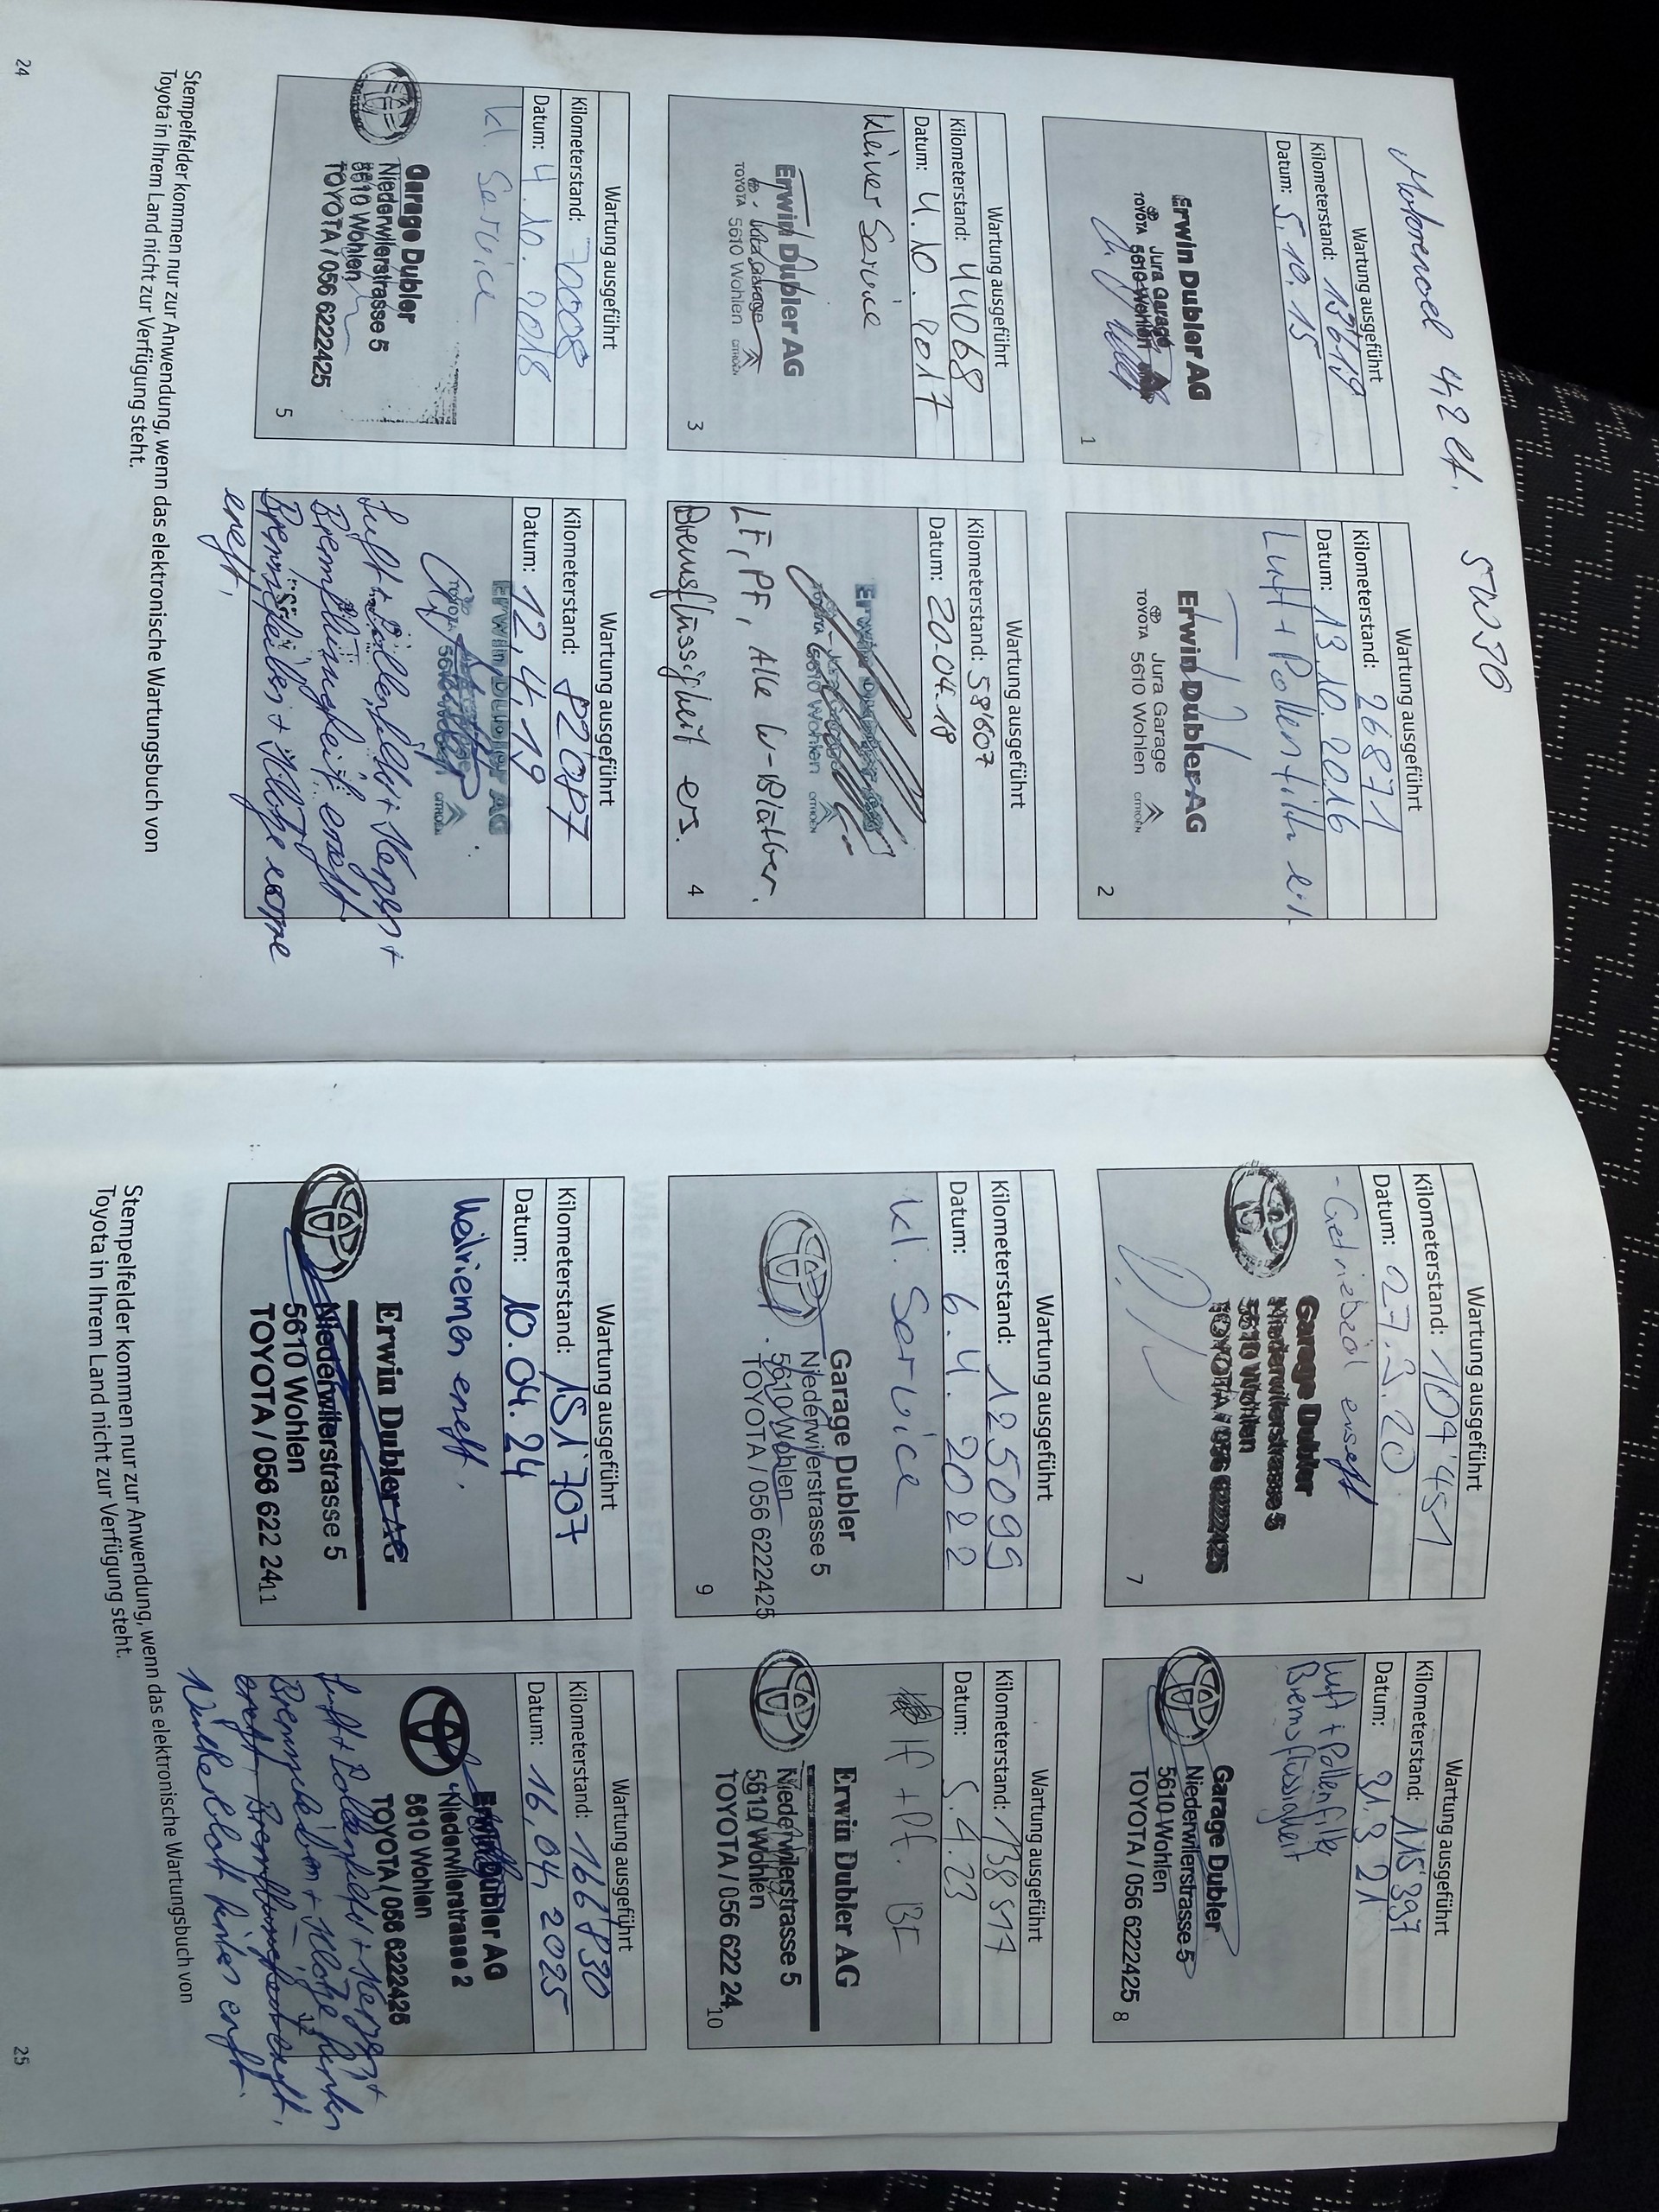 Motorenoel 4,2 lt. 5W30
Wartung ausgeführt
Kilometerstand: 13619
Datum: 5.10.15
Erwin Dubler AG
Jura Garage
TOYOTA 5610 Wohlen
1
Wartung ausgeführt
Kilometerstand: 26871
Datum: 13.10.2016
Luft + Pollenfilter
Erwin Dubler AG
Jura Garage
TOYOTA 5610 Wohlen CITROËN
2
Wartung ausgeführt
Kilometerstand: 44068
Datum: 4.10.2017
kleiner Service
Erwin Dubler AG
Jura Garage
TOYOTA 5610 Wohlen CITROËN
3
Wartung ausgeführt
Kilometerstand: 58'607
Datum: 20.04.18
Erwin Dubler AG
5610 Wohlen CITROËN
LF, PF, Alle W-Blätter.
Bremsflüssigkeit ers.
4
Wartung ausgeführt
Kilometerstand: 70008
Datum: 4.10.2018
kl. Service
Garage Dubler
Niederwilerstrasse 5
5610 Wohlen
TOYOTA / 056 6222425
5
Wartung ausgeführt
Kilometerstand: 82'087
Datum: 12,4,19
Erwin Dubler AG
TOYOTA CITROËN
Luft + Pollenfilter + Kerzen +
Bremsflüssigkeit ersetzt
Bremsscheiben + Klötze vorne
ersetzt,
Stempelfelder kommen nur zur Anwendung, wenn das elektronische Wartungsbuch von
Toyota in Ihrem Land nicht zur Verfügung steht.
24
Wartung ausgeführt
Kilometerstand: 109'451
Datum: 27.2.20
- Getriebeöl ersetzt
Garage Dubler
Niederwilerstrasse 5
5610 Wohlen
TOYOTA / 056 6222425
7
Wartung ausgeführt
Kilometerstand: 115'397
Datum: 31.3.21
Luft + Pollenfilter
Bremsflüssigkeit
Garage Dubler
Niederwilerstrasse 5
5610 Wohlen
TOYOTA / 056 6222425
8
Wartung ausgeführt
Kilometerstand: 125099
Datum: 6.4.2022
kl. Service
Garage Dubler
Niederwilerstrasse 5
5610 Wohlen
TOYOTA / 056 6222425
9
Wartung ausgeführt
Kilometerstand: 138517
Datum: 5.4.23
lf + Pf. BF
Erwin Dubler AG
Niederwilerstrasse 5
5610 Wohlen
TOYOTA / 056 622 24
10
Wartung ausgeführt
Kilometerstand: 151'707
Datum: 10.04.24
Keilriemen ersetzt.
Erwin Dubler AG
Niederwilerstrasse 5
5610 Wohlen
TOYOTA / 056 622 24
11
Wartung ausgeführt
Kilometerstand: 166'830
Datum: 16,04,2025
Erwin Dubler AG
Niederwilerstrasse 2
5610 Wohlen
TOYOTA / 056 6222425
Luft + Pollenfilter + Kerzen +
Bremsscheiben + Klötze hinten
ersetzt, Bremsflüssigkeit ersetzt,
Wischerblatt hinten ersetzt.
12
Stempelfelder kommen nur zur Anwendung, wenn das elektronische Wartungsbuch von
Toyota in Ihrem Land nicht zur Verfügung steht.
25